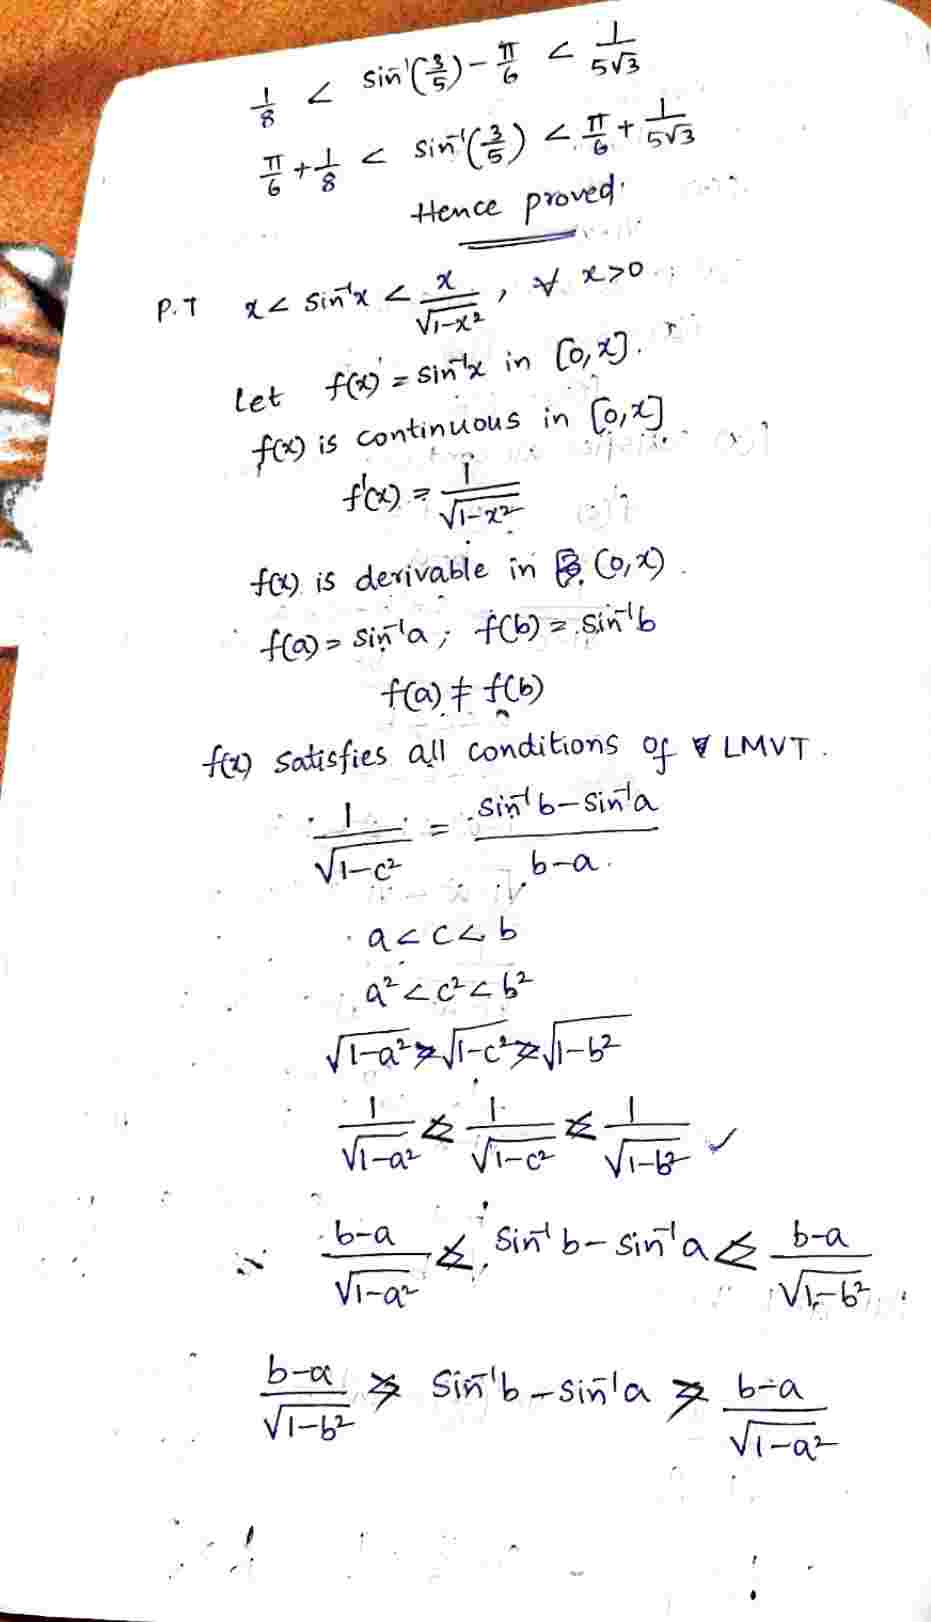 1/8 < sin⁻¹(3/5) - π/6 < 1/5√3
π/6 + 1/8 < sin⁻¹(3/5) < π/6 + 1/5√3
Hence proved.
P.T x < sin⁻¹x < x/√1-x², ∀ x>0.
Let f(x) = sin⁻¹x in [0,x].
f(x) is continuous in [0,x]
f'(x) = 1/√1-x²
f(x) is derivable in (0,x).
f(a) = sin⁻¹a; f(b) = sin⁻¹b
f(a) ≠ f(b)
f(x) satisfies all conditions of LMVT.
1/√1-c² = sin⁻¹b-sin⁻¹a/b-a.
a<c<b
a²<c²<b²
√1-a² > √1-c² > √1-b²
1/√1-a² < 1/√1-c² < 1/√1-b² ✓
b-a/√1-a² < sin⁻¹b - sin⁻¹a < b-a/√1-b²
b-a/√1-b² > Sin⁻¹b - sin⁻¹a > b-a/√1-a²